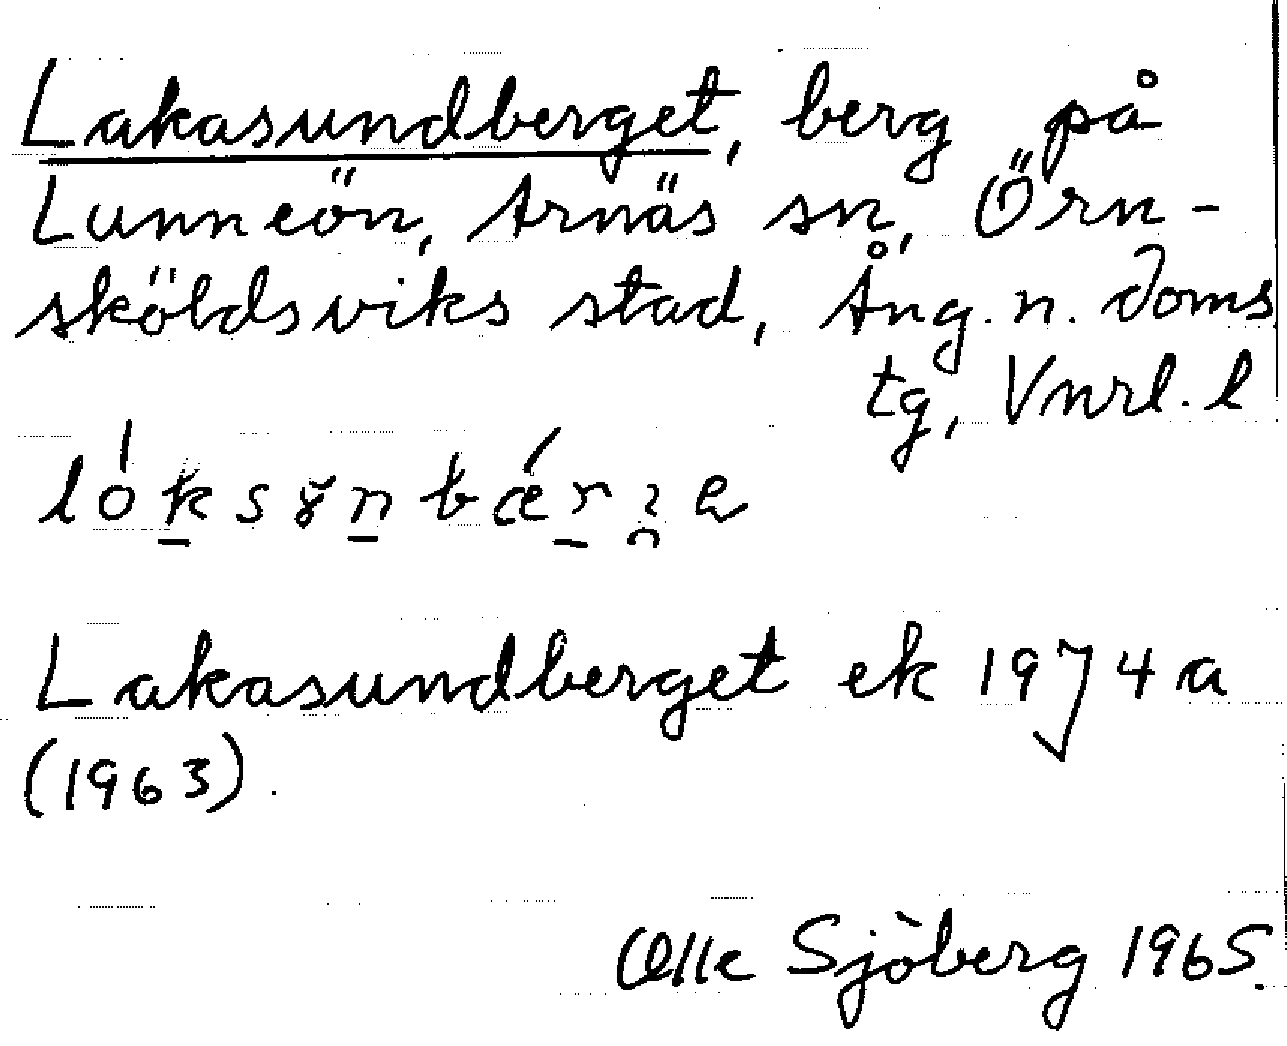 Lakasundberget, berg på
Lunneön, Arnäs sn, Örn-
sköldsviks stad, Ång. n. doms
tg, Vnrl. l
Lakasundberget ek 1974 a
(1963).
Olle Sjöberg 1965.